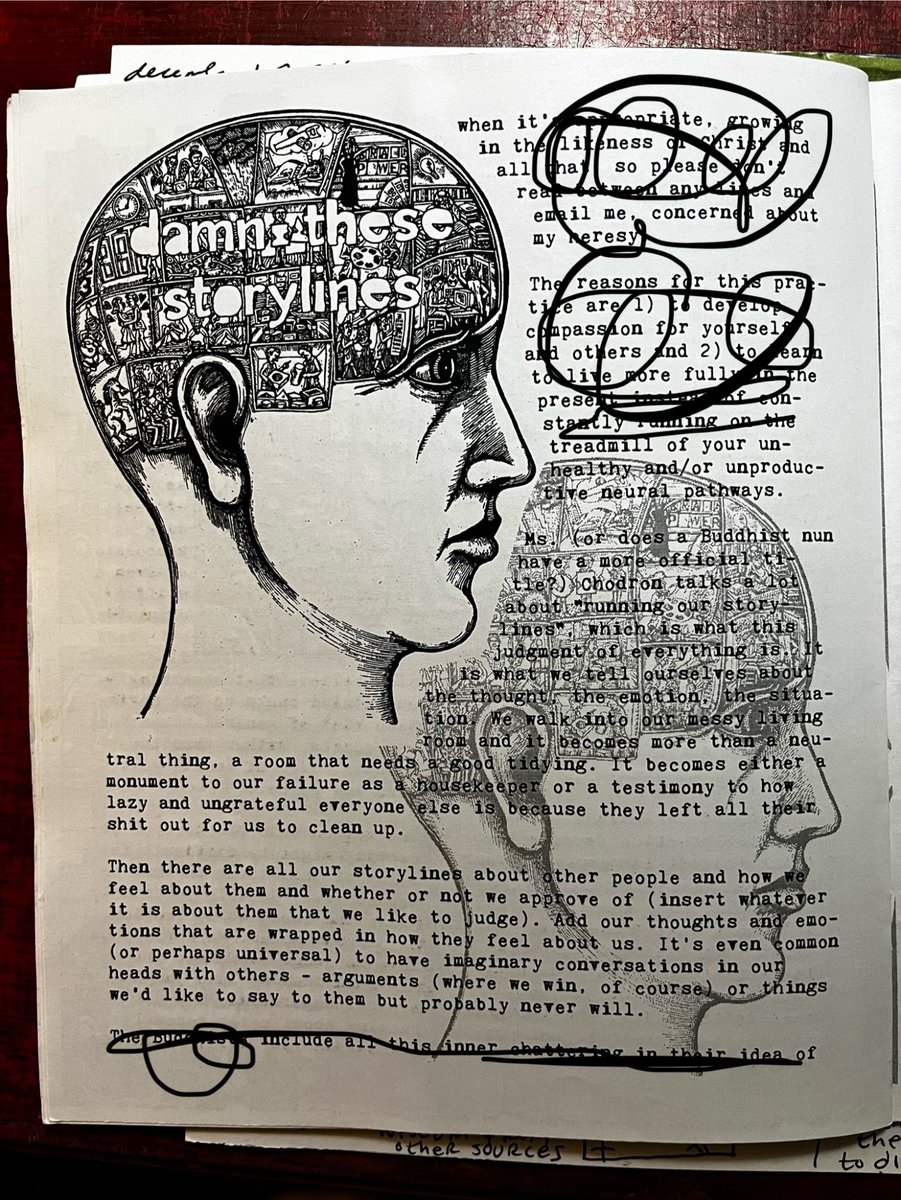 damn these
storylines
when it's appropriate, growing
in the likeness of Christ and
all that so please don't
read between any lines and
email me, concerned about
my heresy
The reasons for this prac-
tice are 1) to develop
compassion for yourself
and others and 2) to learn
to live more fully in the
present instead of con-
stantly running on the
treadmill of your un-
healthy and/or unproduc-
tive neural pathways.
Ms. (or does a Buddhist nun
have a more official ti-
tle?) Chodron talks a lot
about "running our story-
lines", which is what this
judgment of everything is. It
is what we tell ourselves about
the thought, the emotion, the situa-
tion. We walk into our messy living
room and it becomes more than a neu-
tral thing, a room that needs a good tidying. It becomes either a
monument to our failure as a housekeeper or a testimony to how
lazy and ungrateful everyone else is because they left all their
shit out for us to clean up.
Then there are all our storylines about other people and how we
feel about them and whether or not we approve of (insert whatever
it is about them that we like to judge). Add our thoughts and emo-
tions that are wrapped in how they feel about us. It's even common
(or perhaps universal) to have imaginary conversations in our
heads with others - arguments (where we win, of course) or things
we'd like to say to them but probably never will.
The Buddhists include all this inner chattering in their idea of
other sources
the
to di